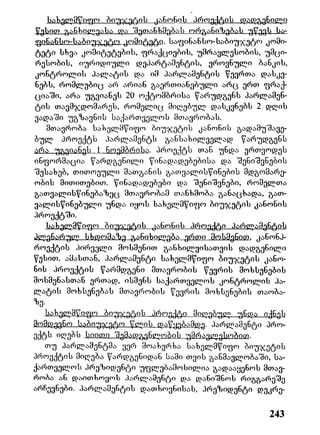 სახელმწიფო ბიუჯეტის კანონის პროექტის დადგენილი
წესით განხილვასა და შეთანხმებას ორგანიზებას უწევს სა-
ფინანსო-საბიუჯეტო კომიტეტი. საფინანსო-საბიუჯეტო კომი-
ტეტი სხვა კომიტეტების, ფრაქციების, უმრავლესობის, უმცი-
რესობის, იურიდიული დეპარტამენტის, ეროვნული ბანკის,
კონტროლის პალატის და იმ პარლამენტის წევრთა დასკვ-
ნებს, რომლებიც არ არიან გაერთიანებული არც ერთ ფრაქ-
ციაში, არა უგვიანეს 20 ოქტომბრისა წარუდგენს პარლამენ-
ტის თავმჯდომარეს, რომელიც მიღებულ დასკვნებს 2 დღის
ვადაში უგზავნის საქართველოს მთავრობას.
მთავრობა სახელმწიფო ბიუჯეტის კანონის გადამუშავე-
ბულ პროექტს პარლამენტს განსახილველად წარუდგენს
არა უგვიანეს 1 ნოემბრისა. პროექტს თან უნდა ერთვოდეს
ინფორმაცია წარდგენილი წინადადებებისა და შენიშვნების
შესახებ, თითოეული მათგანის გათვალისწინების მდგომარე-
ობის მითითებით. წინადადებები და შენიშვნები, რომელთა
გათვალისწინებაზეც მთავრობამ თანხმობა განაცხადა, გათ-
ვალისწინებული უნდა იყოს სახელმწიფო ბიუჯეტის კანონის
პროექტში.
სახელმწიფო ბიუჯეტის კანონის პროექტი პარლამენტის
პლენარულ სხდომაზე განიხილება ერთი მოსმენით, კანონპ-
როექტის პირველი მოსმენით განხილვისათვის დადგენილი
წესით. ამასთან, პარლამენტი სახელმწიფო ბიუჯეტის კანო-
ნის პროექტის წარმდგენი მთავრობის წევრის მოხსენების
მოსმენასთან ერთად, ისმენს საქართველოს კონტროლის პა-
ლატის მოხსენებას მთავრობის წევრის მოხსენების თაობა-
ზე.
სახელმწიფო ბიუჯეტის პროექტი მიღებულ უნდა იქნეს
მომდევნო საბიუჯეტო წლის დაწყებამდე. პარლამენტი პრო-
ექტს იღებს სიითი შემადგენლობის უმრავლესობით.
თუ პარლამენტმა ვერ მოახერხა სახელმწიფო ბიუჯეტის
პროექტის მიღება წარდგენიდან სამი თვის განმავლობაში, სა-
ქართველოს პრეზიდენტი უფლებამოსილია გადააყენოს მთავ-
რობა ან დაითხოვოს პარლამენტი და დანიშნოს რიგგარეშე
არჩევნები. პარლამენტის დათხოვნისას, პრეზიდენტი დეკრე-
243